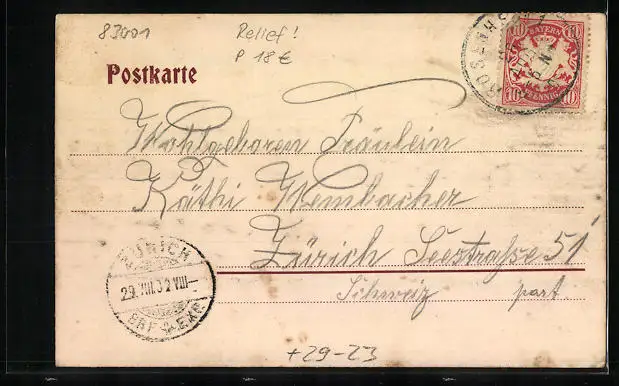 83001
Relief!
P 18€
Postkarte
BAYERN
10 10
10 PFENNIG 10
Wohlgeboren Fräulein
Käthi Wembacher
Zürich Seestraße 51
Schweiz part.
ZÜRICH
29.VIII.02.VIII—
BRF.EXP.
+29-23